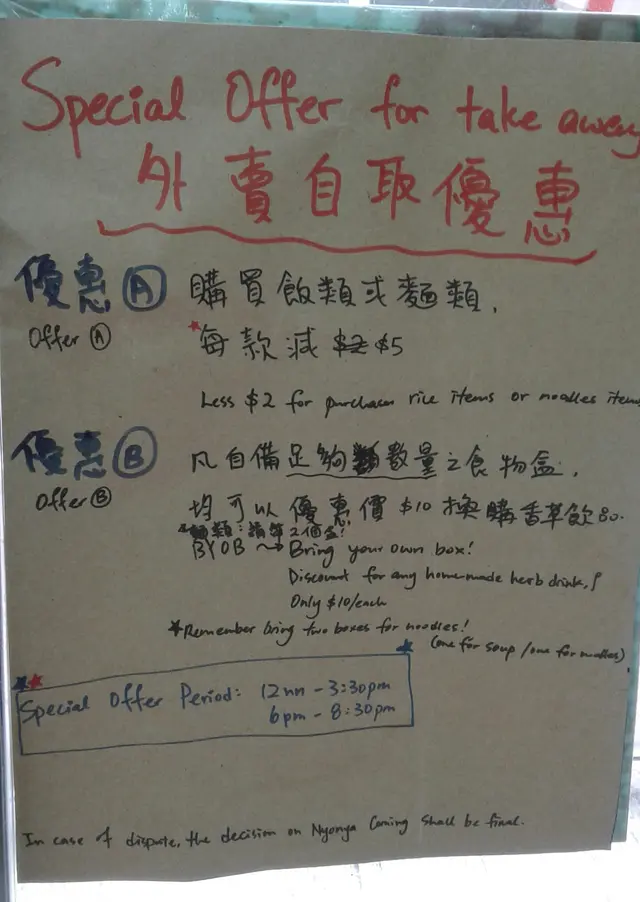 Special Offer for take away
外賣自取優惠
優惠 A 購買飯類或麵類,
Offer A *每款減 $2 $5
Less $2 for purchases rice items or noodles items
優惠 B 凡自備足夠數量之食物盒,
Offer B 均可以優惠價 $10 換購香草飲品.
*麵類:請準2個盒!
BYOB → Bring your own box!
Discount for any home-made herb drink,
Only $10/each
*Remember bring two boxes for noodles!
(one for soup / one for noodles)
Special Offer Period: 12nn - 3:30pm
6pm - 8:30pm
In case of dispute, the decision on Nyonya Coming shall be final.